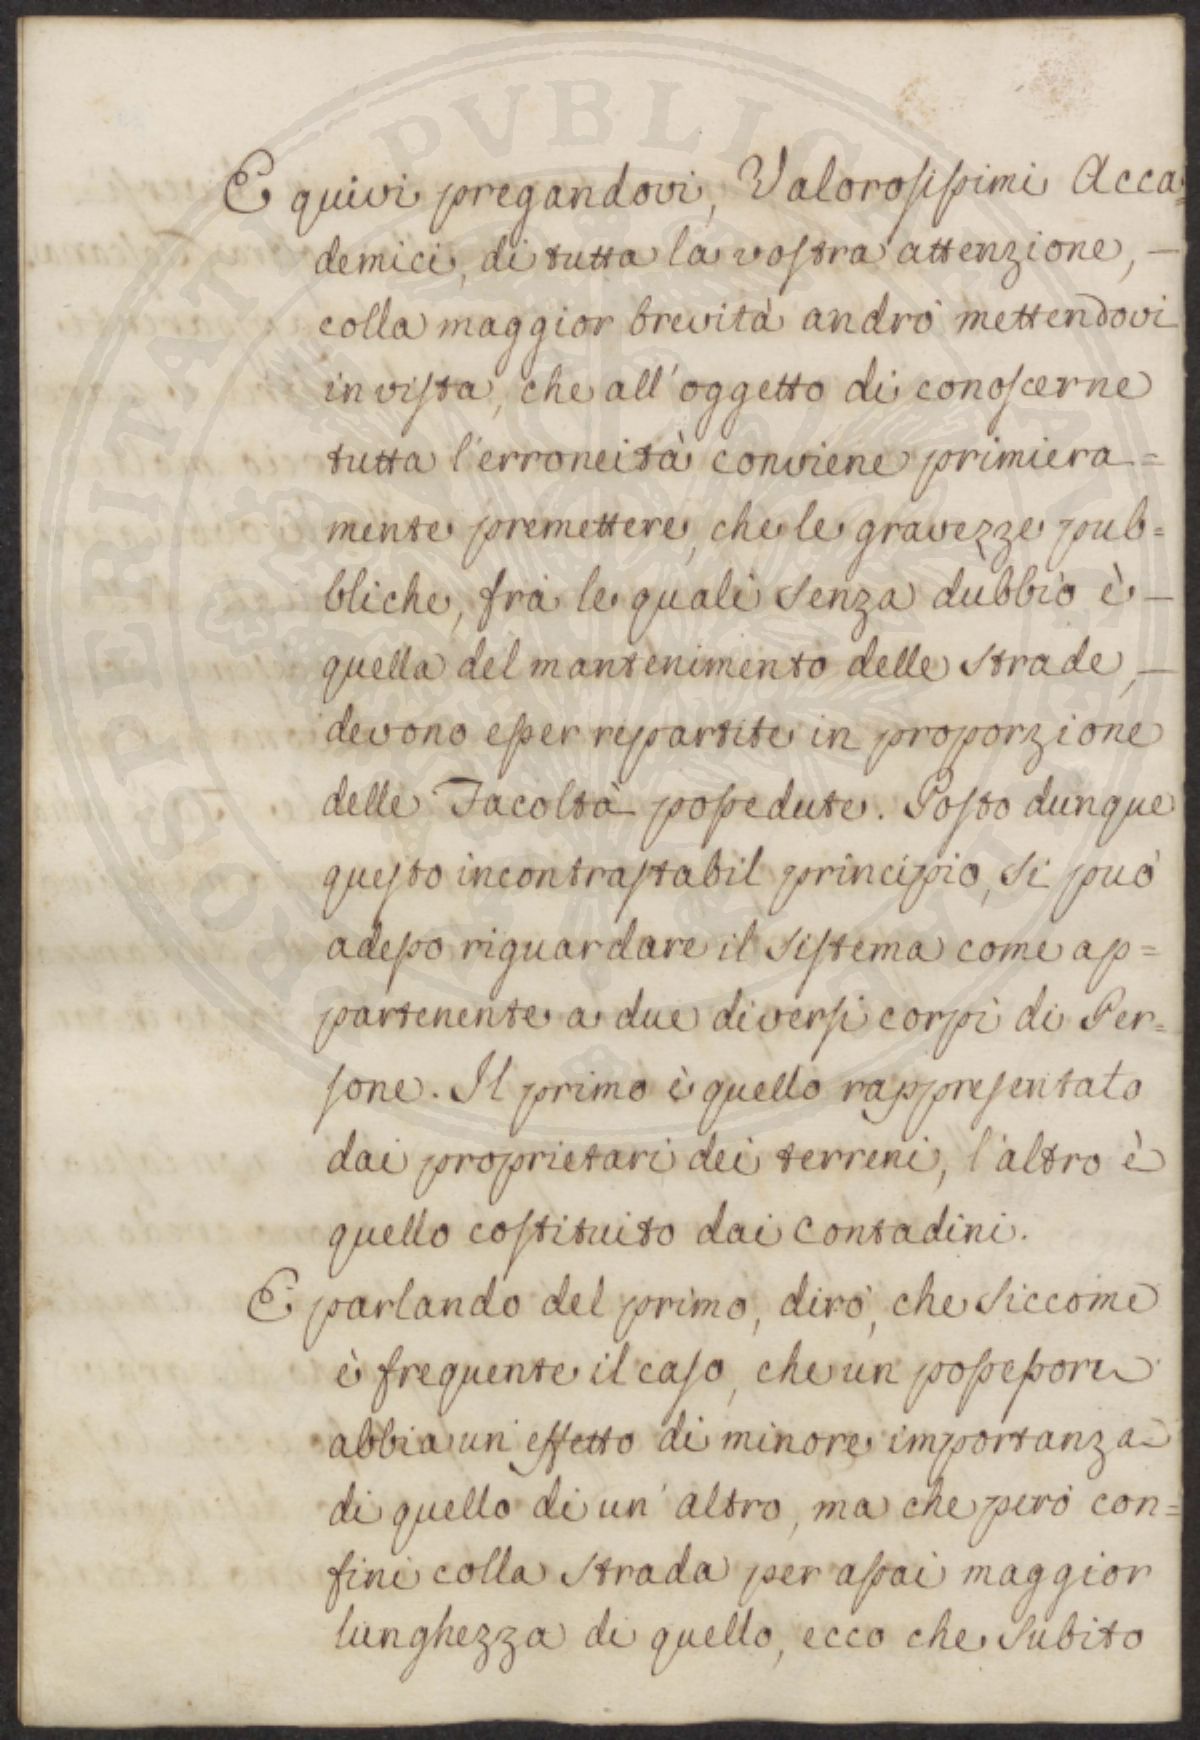 E quivi pregandovi, Valorosissimi Acca=
demici, di tutta la vostra attenzione, —
colla maggior brevità andrò mettendovi
in vista, che all'oggetto di conoscerne
tutta l'erroneità conviene primiera=
mente premettere, che le gravezze pub=
bliche, frà le quali senza dubbio è —
quella del mantenimento delle strade, —
devono esser repartite in proporzione
delle Facoltà possedute. Posto dunque
questo incontrastabil principio, si può
adesso riguardare il sistema come ap=
partenente a due diversi corpi di Per=
sone. Il primo è quello rappresentato
dai proprietari dei terreni, l'altro è
quello costituito dai Contadini.
E parlando del primo, dirò, che siccome
è frequente il caso, che un possessore
abbia un effetto di minore importanza
di quello di un'altro, ma che però con=
fini colla strada per assai maggior
lunghezza di quello, ecco che subito
PROSPERITATI PUBLICAE AUGENDAE